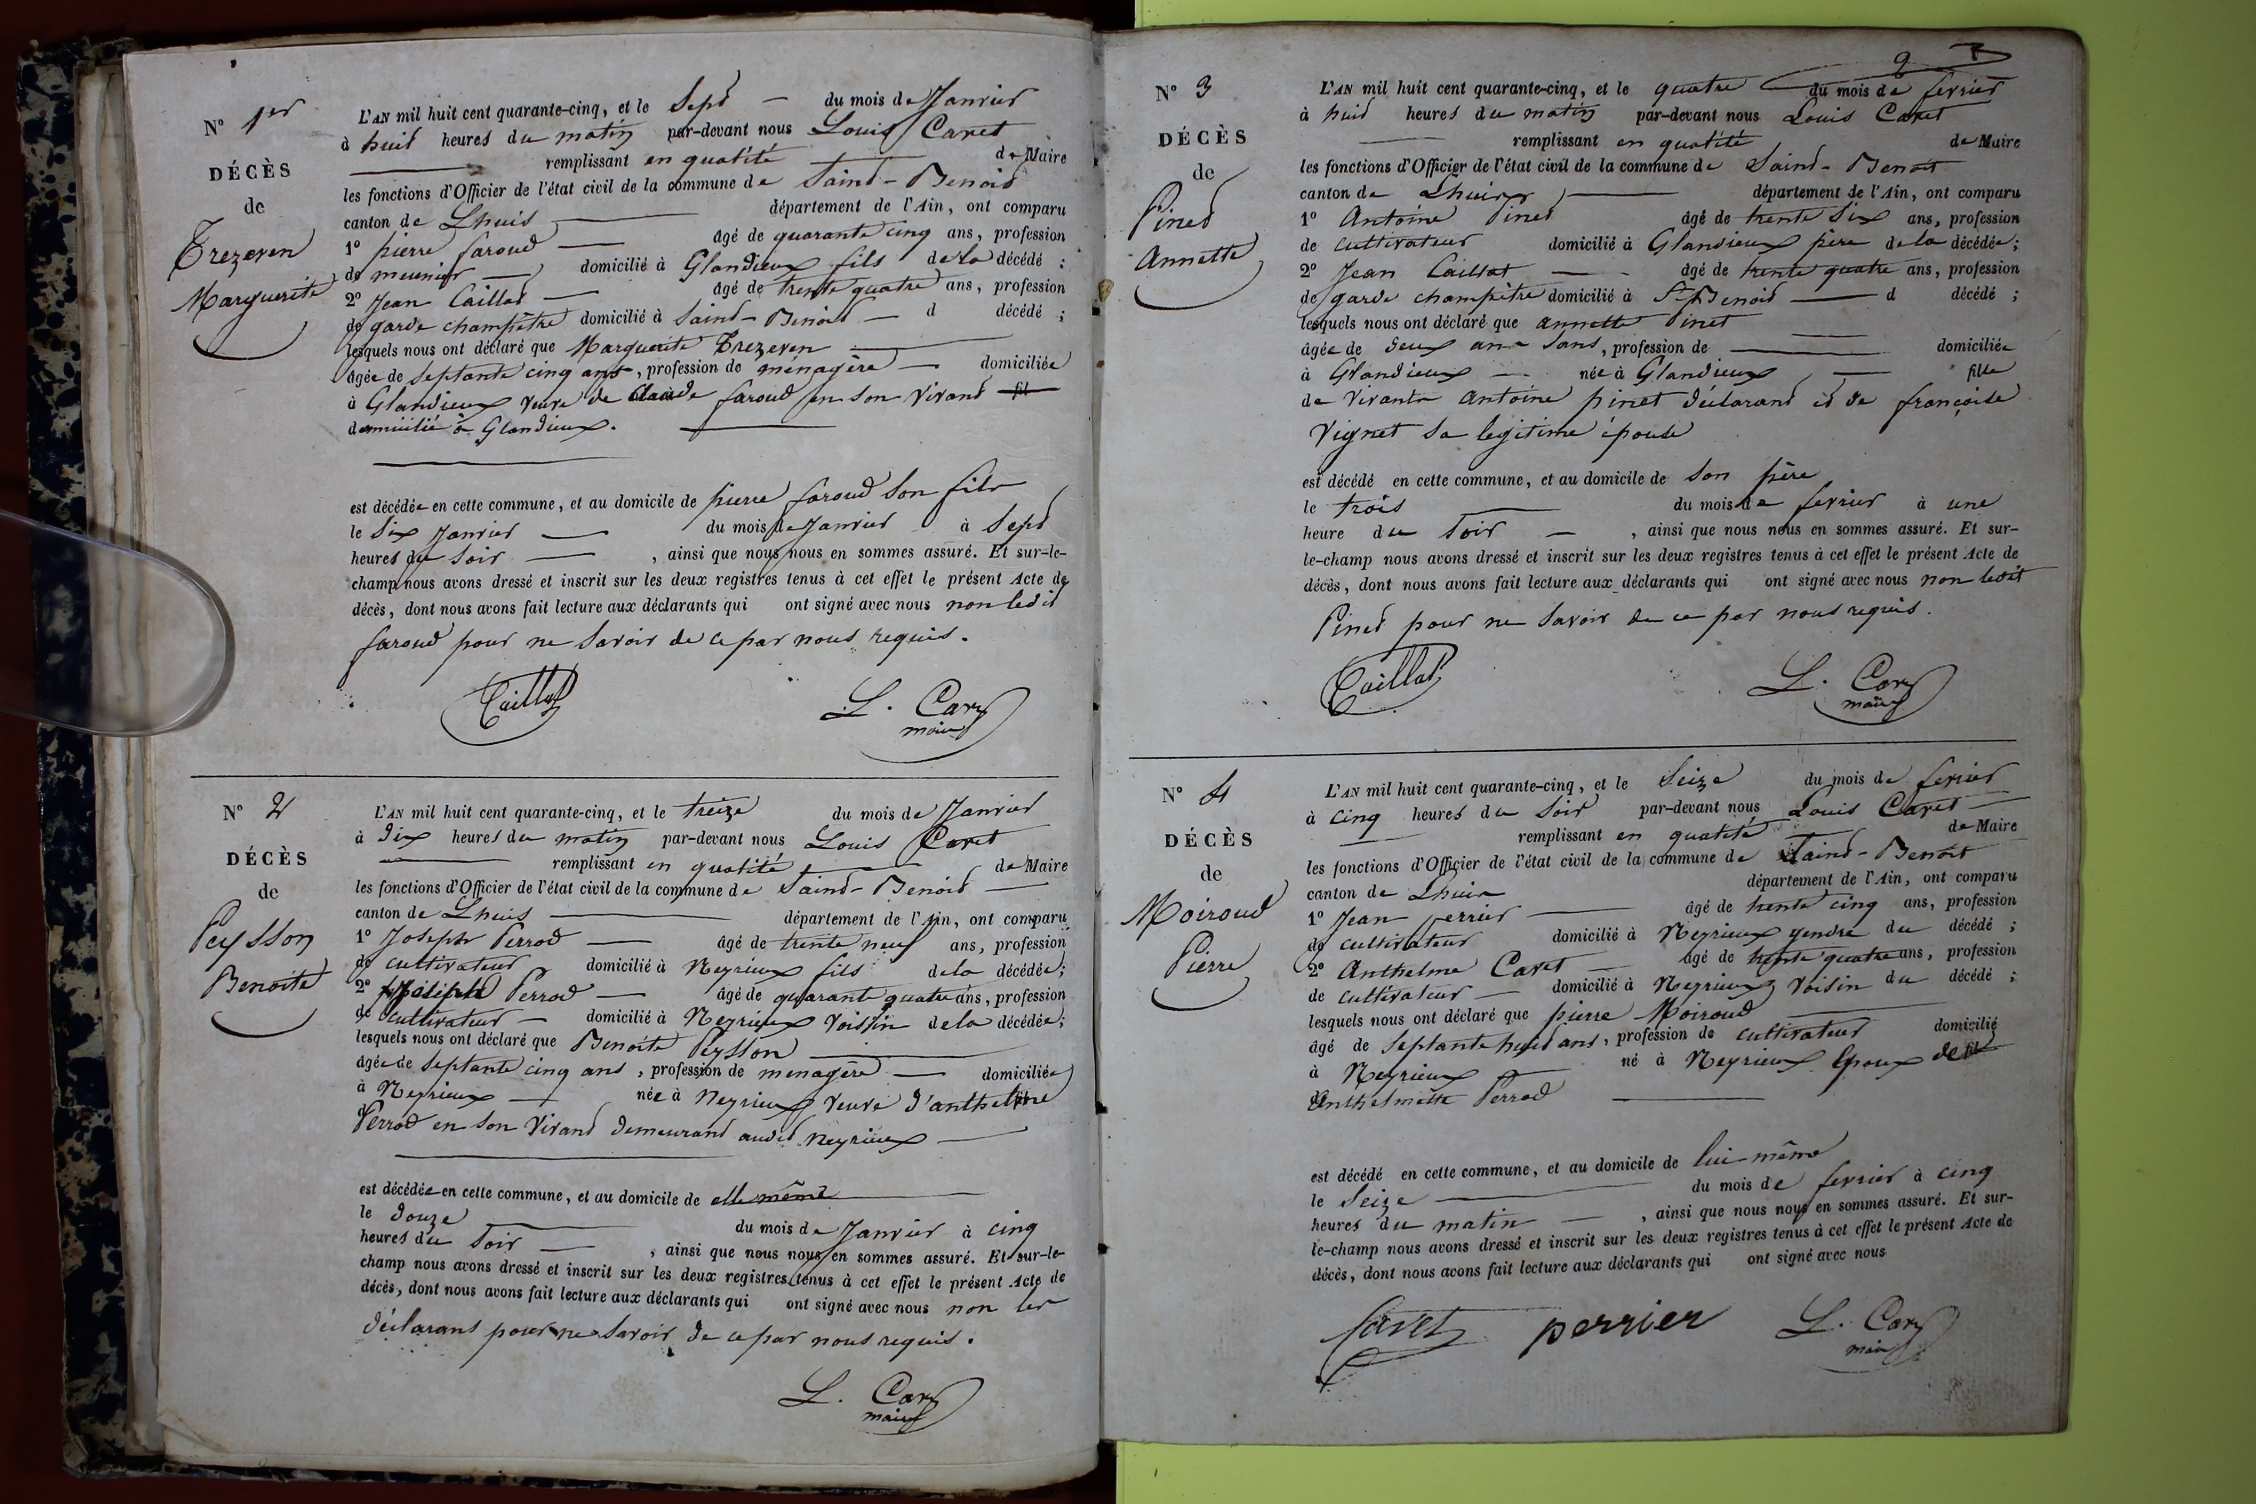 N° 1er
DÉCÈS
de
Trezeven
Marguerite
L'AN mil huit cent quarante-cinq, et le Sept du mois de Janvier
à huit heures du matin par-devant nous Louis Caret
remplissant en qualité de Maire
les fonctions d'Officier de l'état civil de la commune de Saint-Benoit
canton de Lhuis département de l'Ain, ont comparu
1° pierre faroud âgé de quarante cinq ans, profession
de meunier domicilié à Glandieux fils de la décédé ;
2° Jean Caillat âgé de trente quatre ans, profession
de garde champêtre domicilié à Saint-Benoit d décédé ;
lesquels nous ont déclaré que Marguerite Trezeven
âgée de septante cinq ans, profession de menagère domiciliée
à Glandieux veuve de Claude faroud en son vivant fil
domicilié à Glandieux.
est décédée en cette commune, et au domicile de pierre faroud son fils
le Six Janvier du mois de Janvier à Sept
heures du Soir , ainsi que nous nous en sommes assuré. Et sur-le-
champ nous avons dressé et inscrit sur les deux registres tenus à cet effet le présent Acte de
décès, dont nous avons fait lecture aux déclarants qui ont signé avec nous non ledit
faroud pour ne savoir de ce par nous requis.
Caillat L. Caret
maire
N° 2
DÉCÈS
de
Peysson
Benoite
L'AN mil huit cent quarante-cinq, et le treize du mois de Janvier
à dix heures du matin par-devant nous Louis Caret
remplissant en qualité de Maire
les fonctions d'Officier de l'état civil de la commune de Saint-Benoit
canton de Lhuis département de l'Ain, ont comparu
1° Joseph Perrod âgé de trente neuf ans, profession
de cultivateur domicilié à Neyrieux fils de la décédée;
2° Joseph Perrod âgé de quarante quatre ans, profession
de cultivateur domicilié à Neyrieux voissin de la décédée;
lesquels nous ont déclaré que Benoite Peysson
âgée de septante cinq ans, profession de menagère domiciliée
à Neyrieux née à Neyrieux veuve d'anthelme
Perrod en son vivant demeurant audit neyrieux
est décédée en cette commune, et au domicile de elle même
le douze du mois de Janvier à cinq
heures du Soir , ainsi que nous nous en sommes assuré. Et sur-le-
champ nous avons dressé et inscrit sur les deux registres tenus à cet effet le présent Acte de
décès, dont nous avons fait lecture aux déclarants qui ont signé avec nous non les
déclarans pour ne savoir de ce par nous requis.
L. Caret
maire
2
N° 3
DÉCÈS
de
Pinet
Annette
L'AN mil huit cent quarante-cinq, et le quatre du mois de fevrier
à huit heures du matin par-devant nous Louis Caret
remplissant en qualité de Maire
les fonctions d'Officier de l'état civil de la commune de Saint-Benoit
canton de Lhuis département de l'Ain, ont comparu
1° Antoine Pinet âgé de trente Six ans, profession
de cultivateur domicilié à Glandieux père de la décédée;
2° Jean Caillat âgé de trente quatre ans, profession
de garde champêtre domicilié à St Benoit d décédé ;
lesquels nous ont déclaré que annette Pinet
âgée de deux ans sans, profession de domiciliée
à Glandieux née à Glandieux fille
de vivants antoine pinet déclarant et de françoise
Vignet sa legitime épouse
est décédé en cette commune, et au domicile de son père
le trois du mois de fevrier à une
heure du Soir , ainsi que nous nous en sommes assuré. Et sur-
le-champ nous avons dressé et inscrit sur les deux registres tenus à cet effet le présent Acte de
décès, dont nous avons fait lecture aux déclarants qui ont signé avec nous non ledit
Pinet pour ne savoir de ce par nous requis.
Caillat L. Caret
maire
N° 4
DÉCÈS
de
Moiroud
Pierre
L'AN mil huit cent quarante-cinq, et le Seize du mois de fevrier
à cinq heures du Soir par-devant nous Louis Caret
remplissant en qualité de Maire
les fonctions d'Officier de l'état civil de la commune de Saint-Benoit
canton de Lhuis département de l'Ain, ont comparu
1° Jean perrier âgé de trente cinq ans, profession
de cultivateur domicilié à Neyrieux gendre du décédé ;
2° Anthelme Caret âgé de trente quatre ans, profession
de cultivateur domicilié à Neyrieux voisin du décédé ;
lesquels nous ont déclaré que pierre Moiroud
âgé de septante huit ans, profession de cultivateur domicilié
à Neyrieux né à Neyrieux Epoux de
Anthelmette Perrod
est décédé en cette commune, et au domicile de lui-même
le Seize du mois de fevrier à cinq
heures du matin , ainsi que nous nous en sommes assuré. Et sur-
le-champ nous avons dressé et inscrit sur les deux registres tenus à cet effet le présent Acte de
décès, dont nous avons fait lecture aux déclarants qui ont signé avec nous
Caret perrier L. Caret
maire